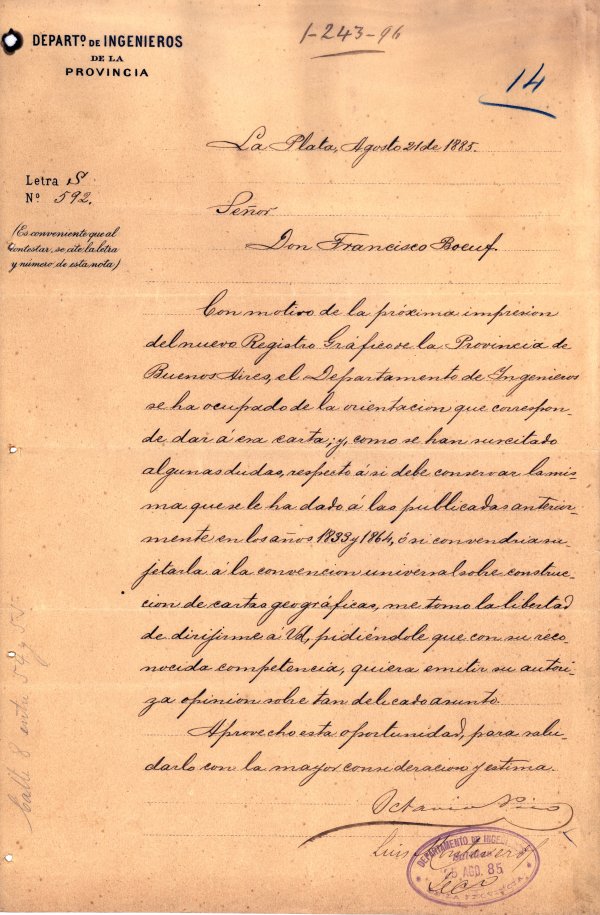 DEPARTº. DE INGENIEROS
DE LA
PROVINCIA
1-243-96
14
La Plata, Agosto 21 de 1885.
Letra S
Nº 592.
(Es conveniente que al
contestar, se cite la letra
y número de esta nota)
Señor
Don Francisco Boeuf.
Con motivo de la próxima impresion
del nuevo Registro Gráfico de la Provincia de
Buenos Aires, el Departamento de Ingenieros
se ha ocupado de la orientacion que correspon-
de dar á esa carta; y, como se han suscitado
algunas dudas, respecto á si debe conservar la mis-
ma que se le ha dado á las publicadas anterior-
mente en los años 1833 y 1864, ó si convendria su-
jetarla á la convencion universal sobre construc-
cion de cartas geográficas, me tomo la libertad
de dirijirme á Vd, pidiéndole que con su reco-
nocida competencia, quiera emitir su autori-
za opinion sobre tan delicado asunto.
Aprovecho esta oportunidad, para salu-
darlo con la mayor consideracion y estima.
Octavio Pico
Luis
Secr
DEPARTAMENTO DE INGENIEROS
25 AGO. 85
DE LA PROVINCIA
Calle 8 entre 54 y 55